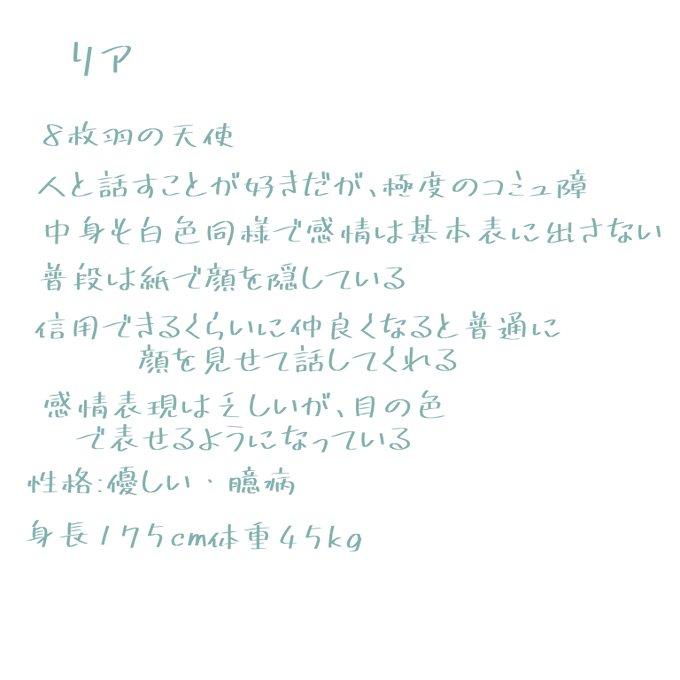 リア
8枚羽の天使
人と話すことが好きだが、極度のコミュ障
中身も白色同様で感情は基本表に出さない
普段は紙で顔を隠している
信用できるくらいに仲良くなると普通に
顔を見せて話してくれる
感情表現は乏しいが、目の色
で表せるようになっている
性格:優しい・臆病
身長175cm体重45kg